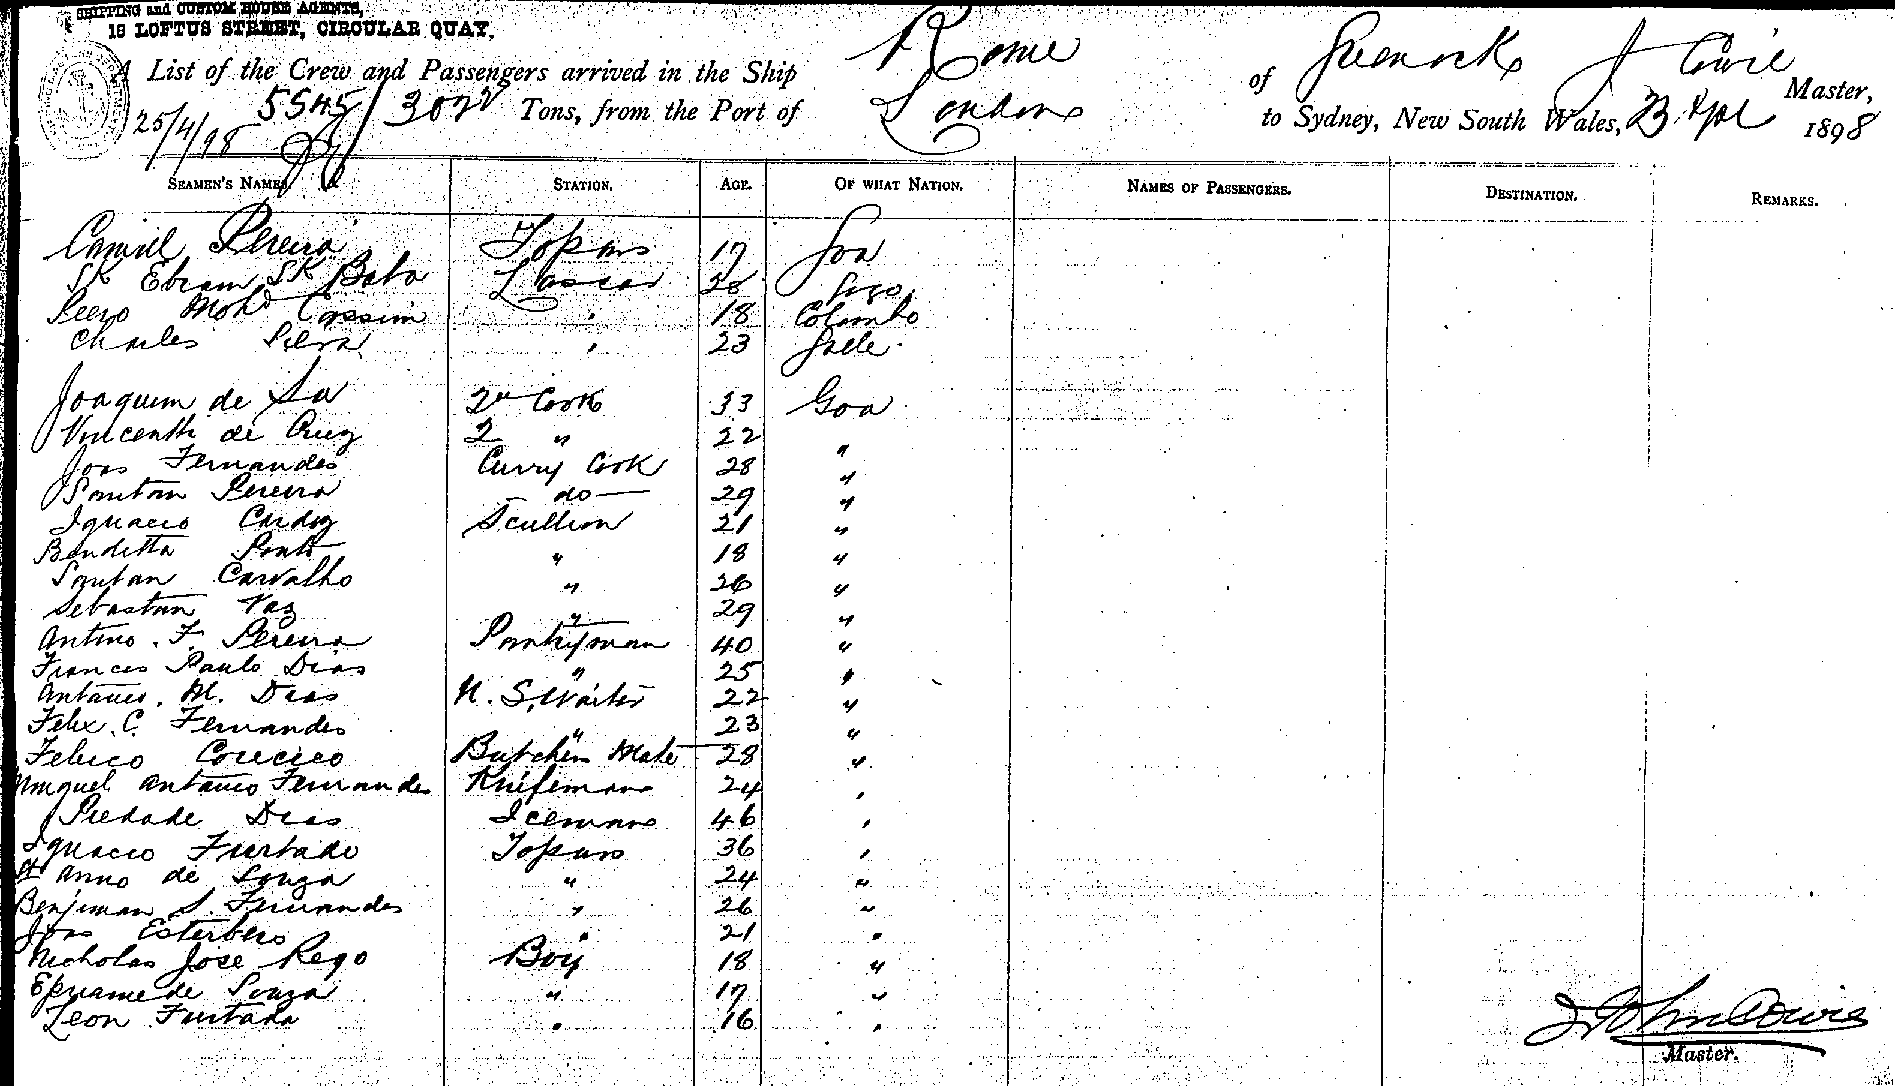 SHIPPING and CUSTOM HOUSE AGENTS,
18 LOFTUS STREET, CIRCULAR QUAY.
A List of the Crew and Passengers arrived in the Ship Rome of Greenock J Cowie Master,
25/4/98 5545/3022 Tons, from the Port of London to Sydney, New South Wales, 23 Apl 1898
SEAMEN'S NAMES. STATION. AGE. OF WHAT NATION. NAMES OF PASSENGERS. DESTINATION. REMARKS.
Camiel Pereira Topass 17 Goa
SK Ebram SK Baba Lascar 28
Peero Mohd Cassim " 18 Colombo
Charles Silva " 23 Galle
Joaquim de Sa 2nd Cook 33 Goa
Vincenth de Cruz 2 " 22 "
Joas Fernandes Curry Cook 28 "
Santan Pereira do 29 "
Ignacio Cardoz Scullion 21 "
Benditta Pinto " 18 "
Santan Carvalho " 26 "
Sebastian Vaz " 29 "
Antino. F. Pereira Pantryman 40 "
Frances Paulo Dias " 25 "
Antanio. M. Dias N. S. Waiter 22 "
Felix. C. Fernandes " 23 "
Felicio Butchers Mate 28 "
Miguel Antanio Fernandes Knifeman 24 "
Piedade Dias Iceman 46 "
Ignacio Furtado Topass 36 "
St Anno de Souza " 24 "
Benjiman S. Fernandes " 26 "
Joas Esterbero " 21 "
Nicholas Jose Rego Boy 18 "
de Souza " 17 "
Leon Furtado " 16 "
J John Cowie
Master.